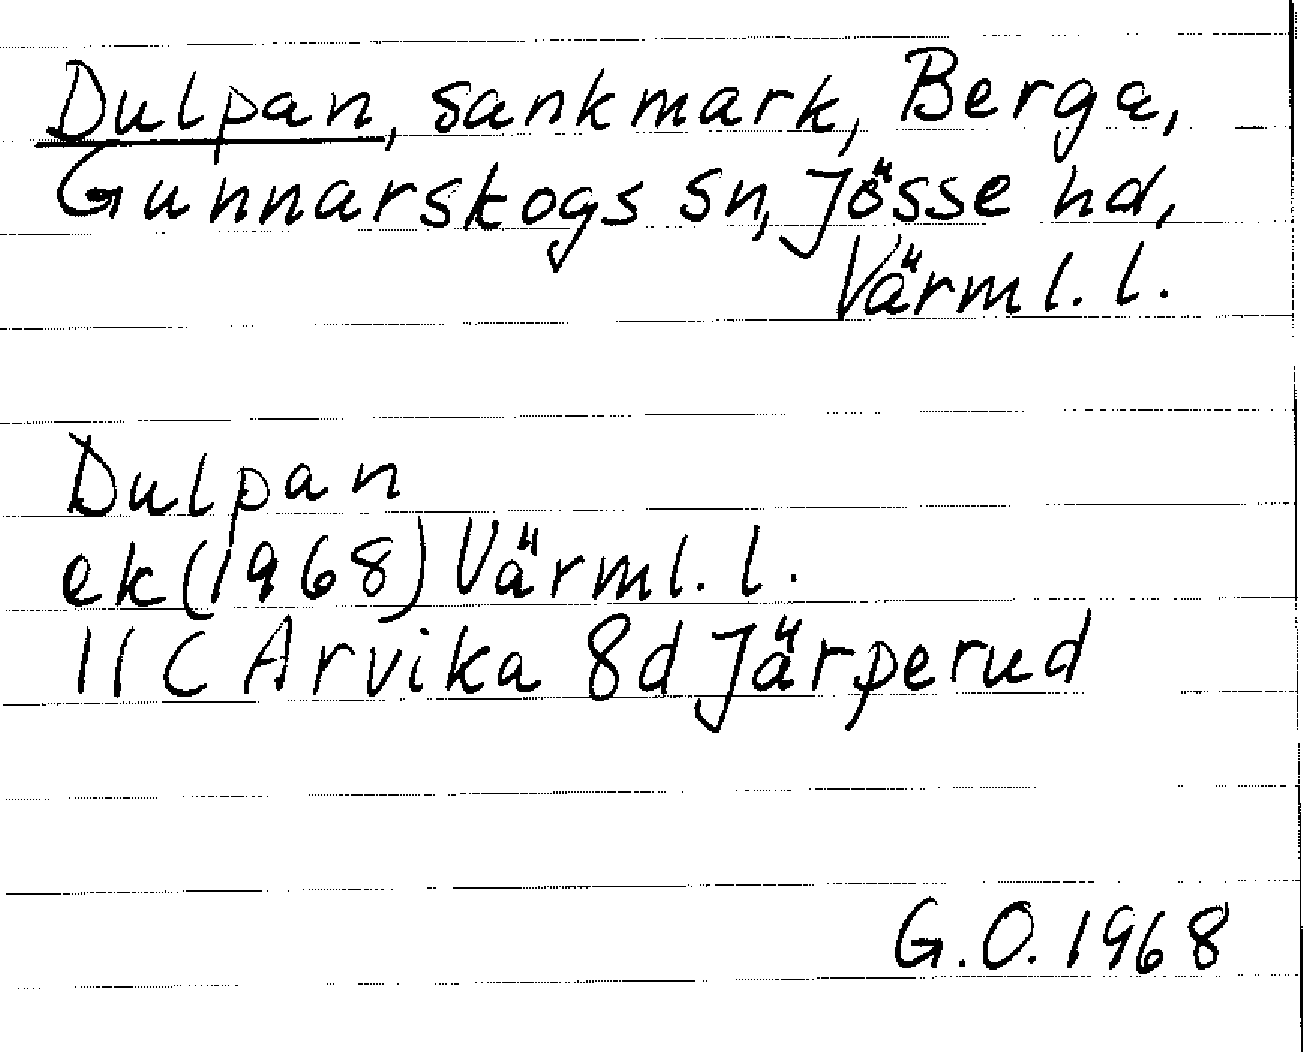 Dulpan, sankmark, Berga,
Gunnarskogs sn, Jösse hd,
Värml. l.
Dulpan
ek (1968) Värml. l.
11 C Arvika 8d Järperud
G.O. 1968